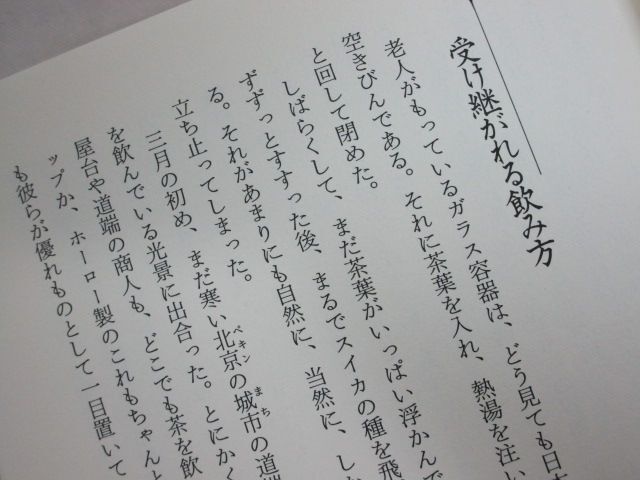 受け継がれる飲み方
老人がもっているガラス容器は、どう見ても日
空きびんである。それに茶葉を入れ、熱湯を注い
と回して閉めた。
しばらくして、まだ茶葉がいっぱい浮かんで
ずずっとすすった後、まるでスイカの種を飛
る。それがあまりにも自然に、当然に、しか
立ち止ってしまった。
三月の初め、まだ寒い北京の城市の道端
ペキン
まち
を飲んでいる光景に出合った。とにかく
屋台や道端の商人も、どこでも茶を飲
ップか、ホーロー製のこれもちゃんと
も彼らが優れものとして一目置いて